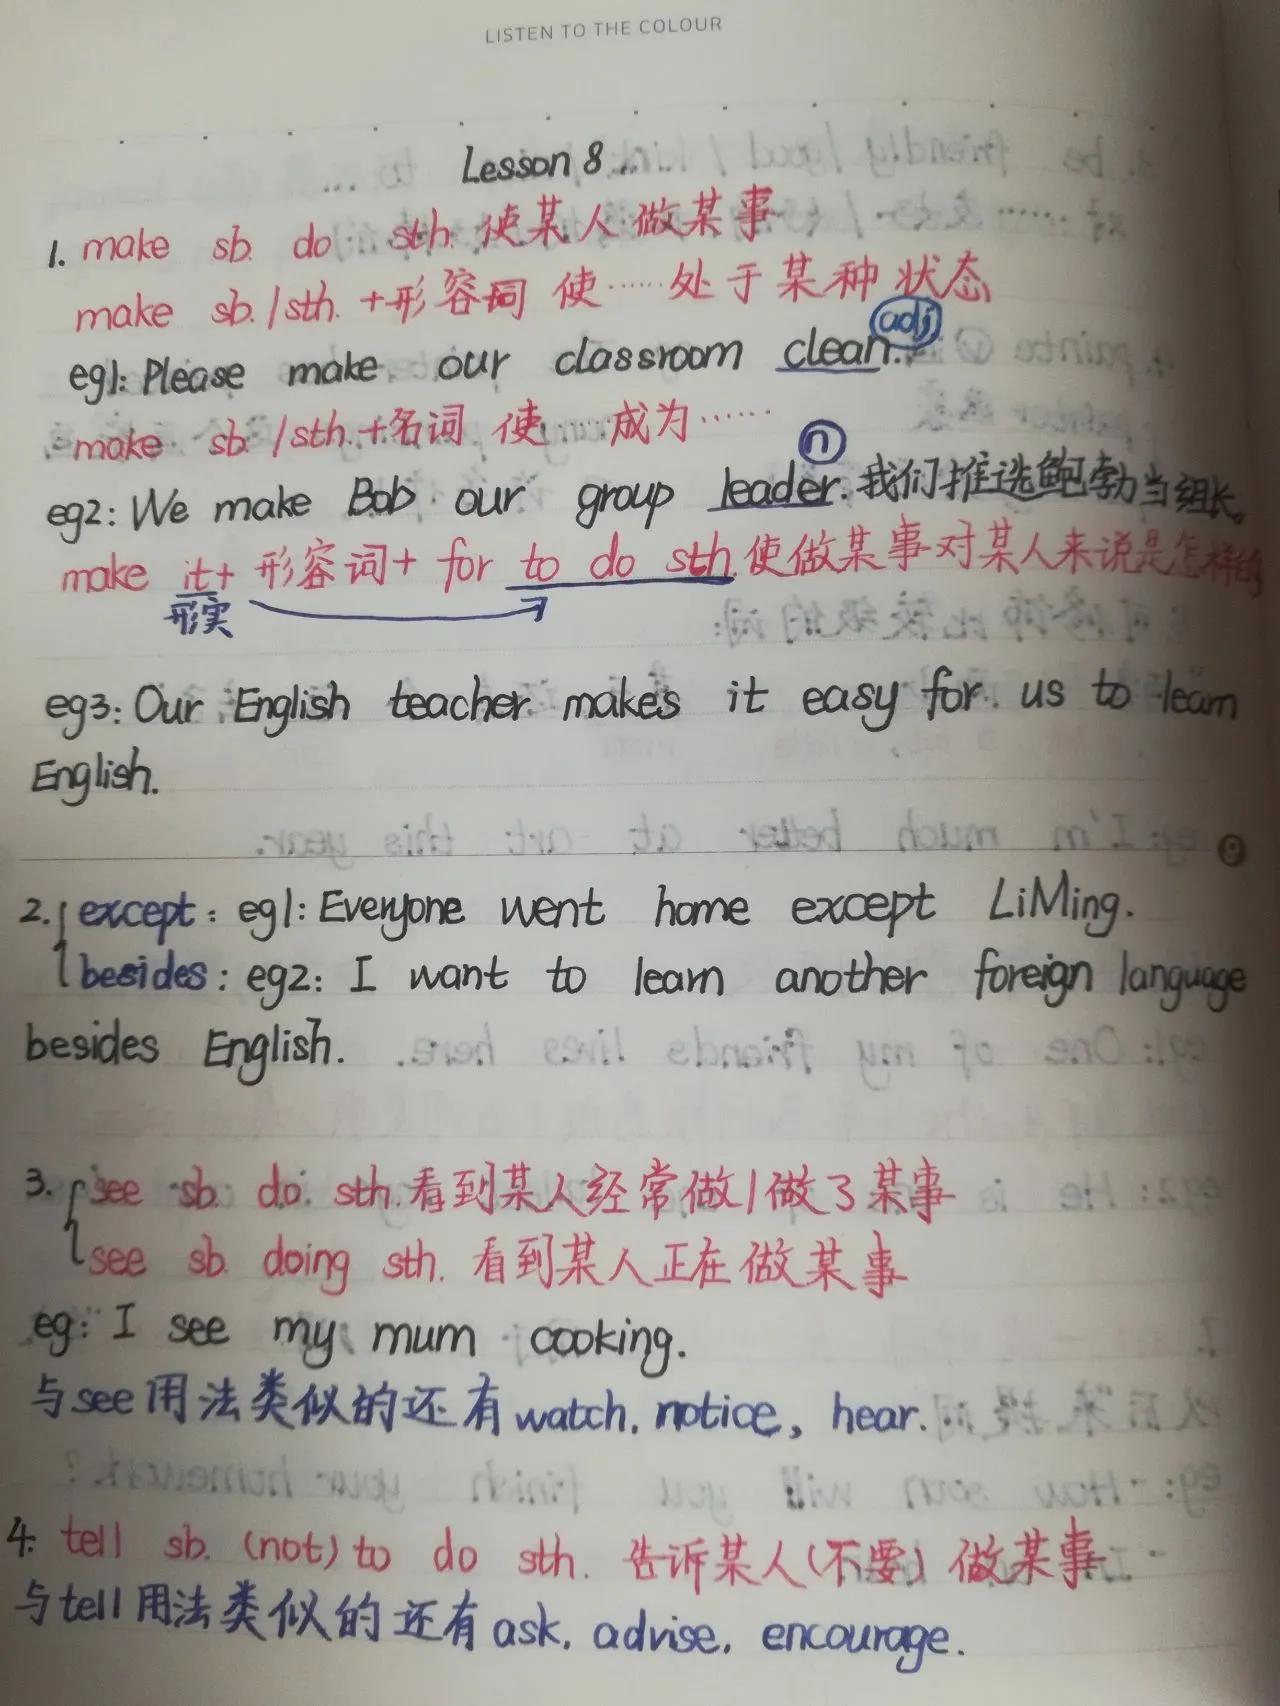 LISTEN TO THE COLOUR
Lesson 8
1. make sb. do sth. 使某人做某事
make sb./sth. +形容词 使……处于某种状态
adj
eg1: Please make our classroom clean.
make sb./sth.+名词 使……成为……
n
eg2: We make Bob our group leader. 我们推选鲍勃当组长。
make it+ 形容词+ for to do sth. 使做某事对某人来说是怎样的
形实
eg3: Our English teacher makes it easy for us to learn
English.
2. except: eg1: Everyone went home except LiMing.
besides: eg2: I want to learn another foreign language
besides English.
3. see sb. do. sth. 看到某人经常做/做了某事
see sb. doing sth. 看到某人正在做某事
eg: I see my mum cooking.
与see用法类似的还有watch, notice, hear.
4. tell sb. (not) to do sth. 告诉某人(不要)做某事
与tell用法类似的还有ask, advise, encourage.